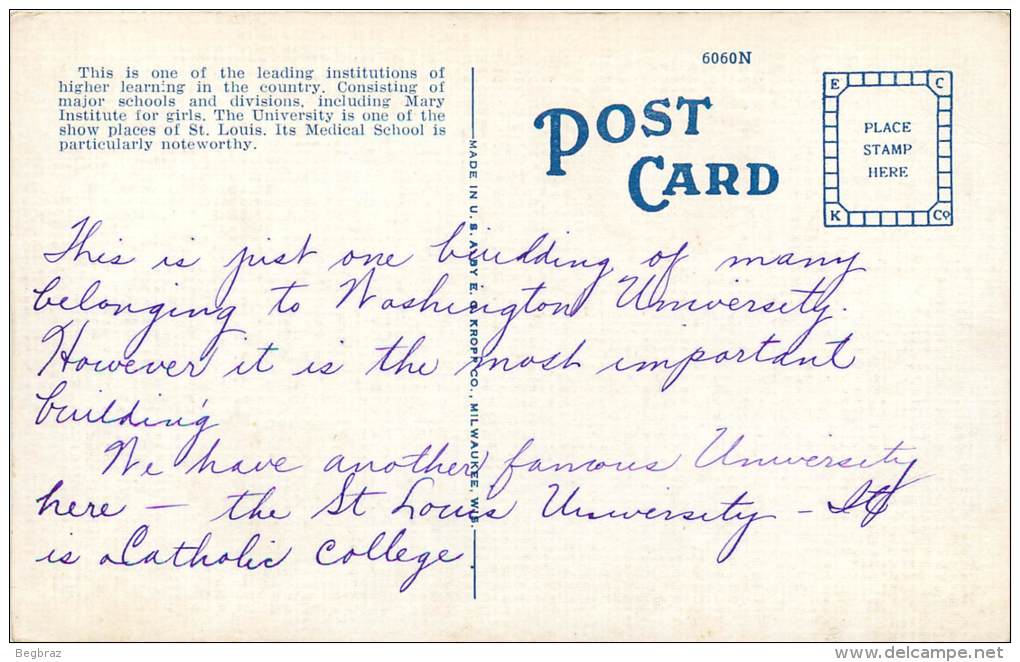 This is one of the leading institutions of
higher learning in the country. Consisting of
major schools and divisions, including Mary
Institute for girls. The University is one of the
show places of St. Louis. Its Medical School is
particularly noteworthy.
6060N
POST
CARD
E C
PLACE
STAMP
HERE
K Co
MADE IN U. S. A. BY E. C. KROPP CO., MILWAUKEE, WIS.
This is just one building of many
belonging to Washington University.
However it is the most important
building
We have another famous University
here — the St Louis University – It
is a Catholic college
Begbraz
www.delcampe.net